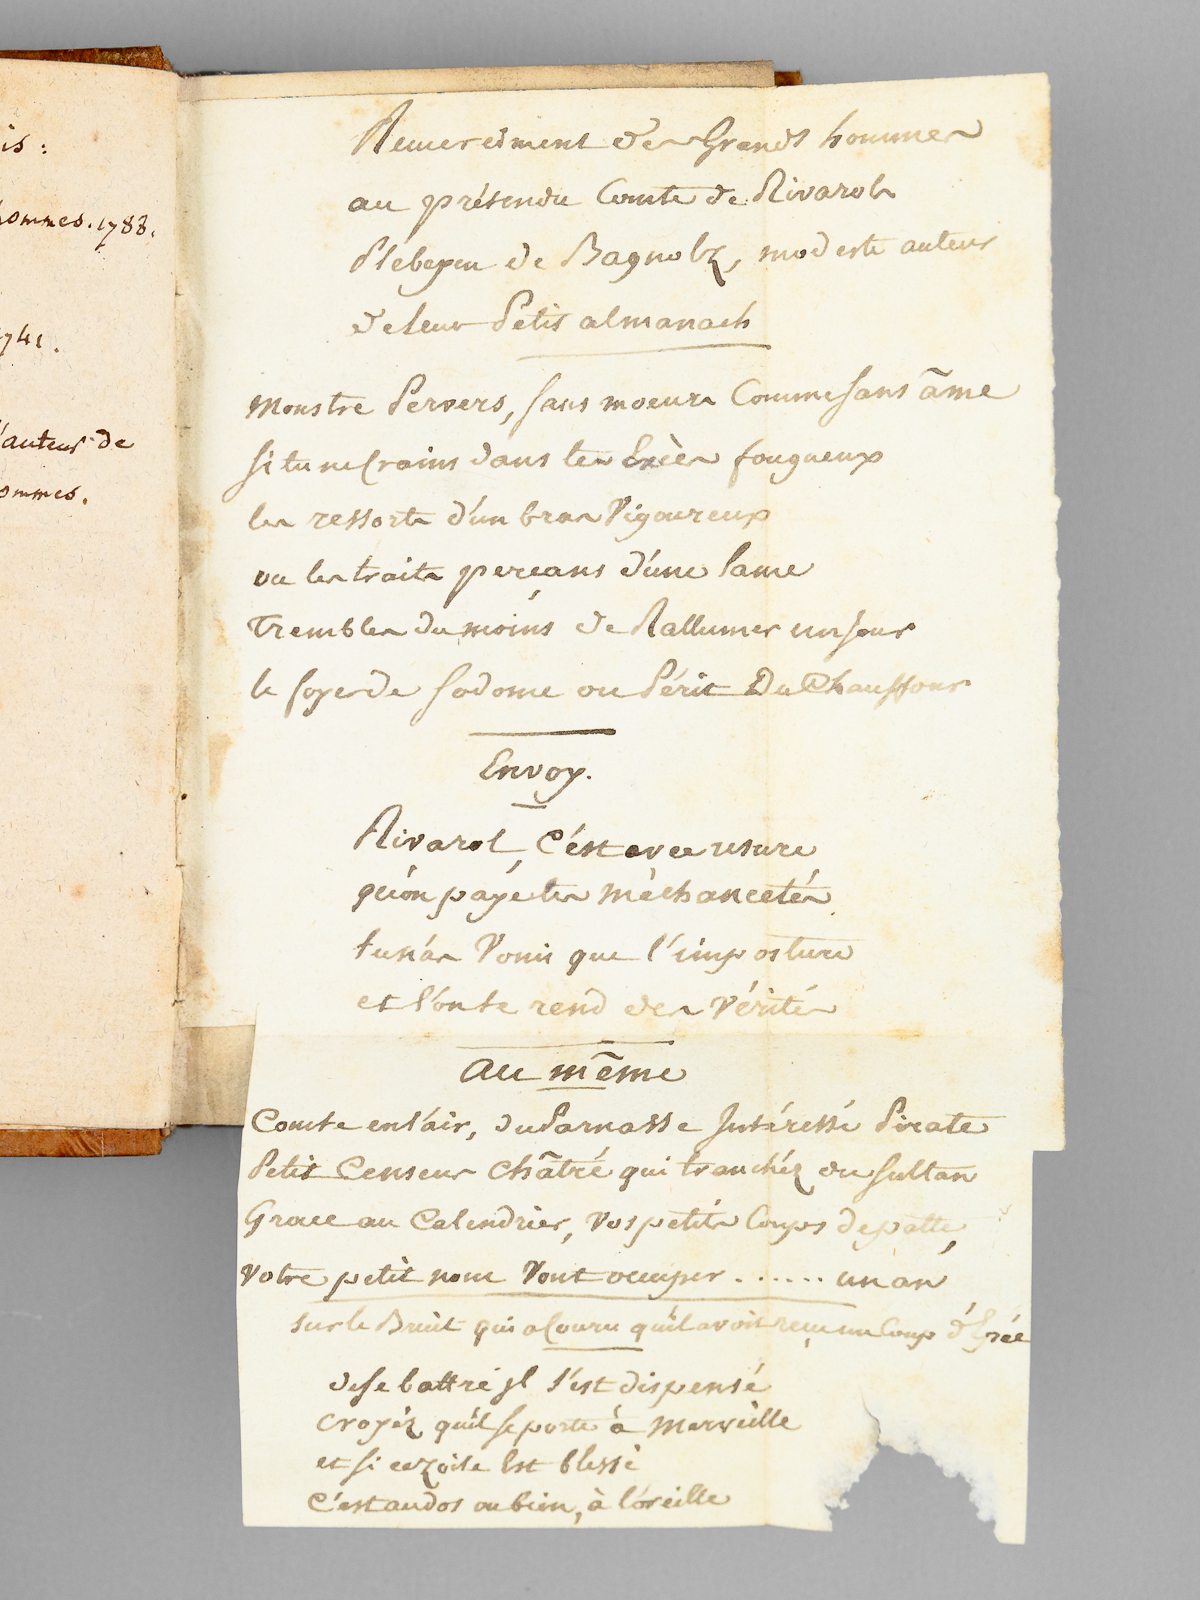 is:
hommes. 1788.
1741.
l'auteur de
hommes.
Remerciment des Grands hommes
au prétendu Comte de Rivarol
Plébeyen de Bagnolz, modeste auteur
de leur Petit almanach
Monstre Pervers, sans moeurs Comme sans âme
Si tu ne Crains dans tes Excès fougueux
les ressorts d'un bras Vigoureux
ou les traits perçans d'une lame
Trembles du moins de Rallumer un jour
le foyer de Sodome ou Périt Du Chauffour
Envoy.
Rivarol, C'ést avec usure
qu'on paye tes méchancetés
tu n'as Vomi que l'imposture
et l'on te rend des Vérités
au même
Comte en l'air, du Parnasse Intéressé Pirate
Petit Censeur châtré qui tranchéz du Sultan
Grace au Calendrier, Vos petits Coups de patte,
Votre petit nom Vont occuper ...... un an
sur le Bruit qui a Couru qu'il avoit reçu un Coup d'Epée
de se battre jl s'est dispensé
croyéz qu'il se porte à Merveille
et si ce zoile Est blessé
c'est au dos ou bien, à l'oreille